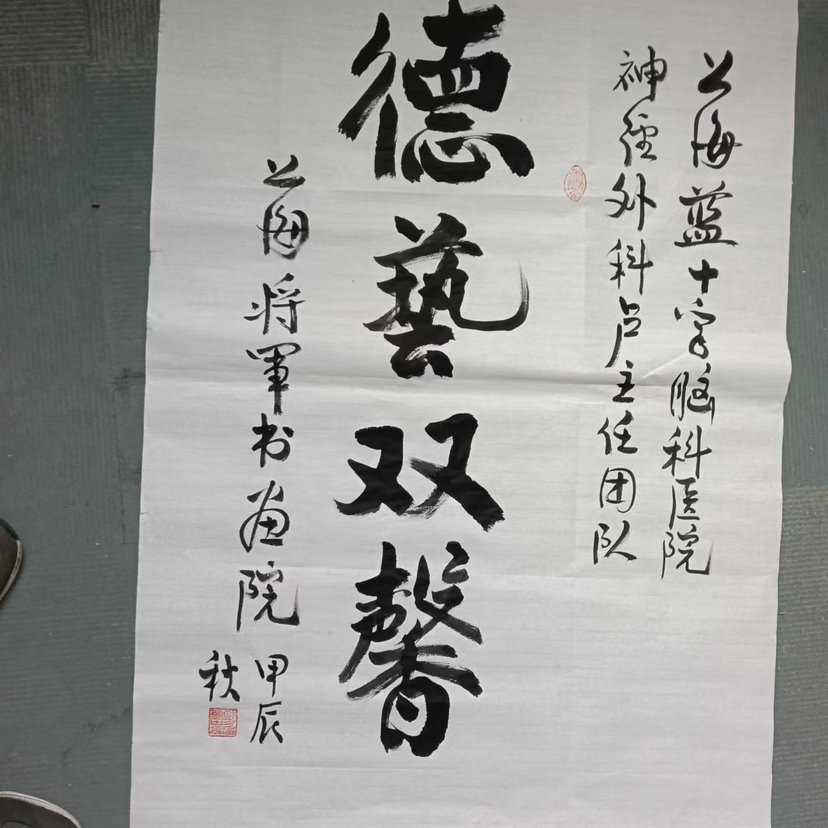 上海蓝十字脑科医院
神经外科卢主任团队
德藝双馨
上海将軍书画院
甲辰
秋